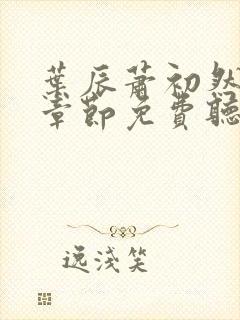 葉辰蕭初然
章節免費聽
逸淺笑